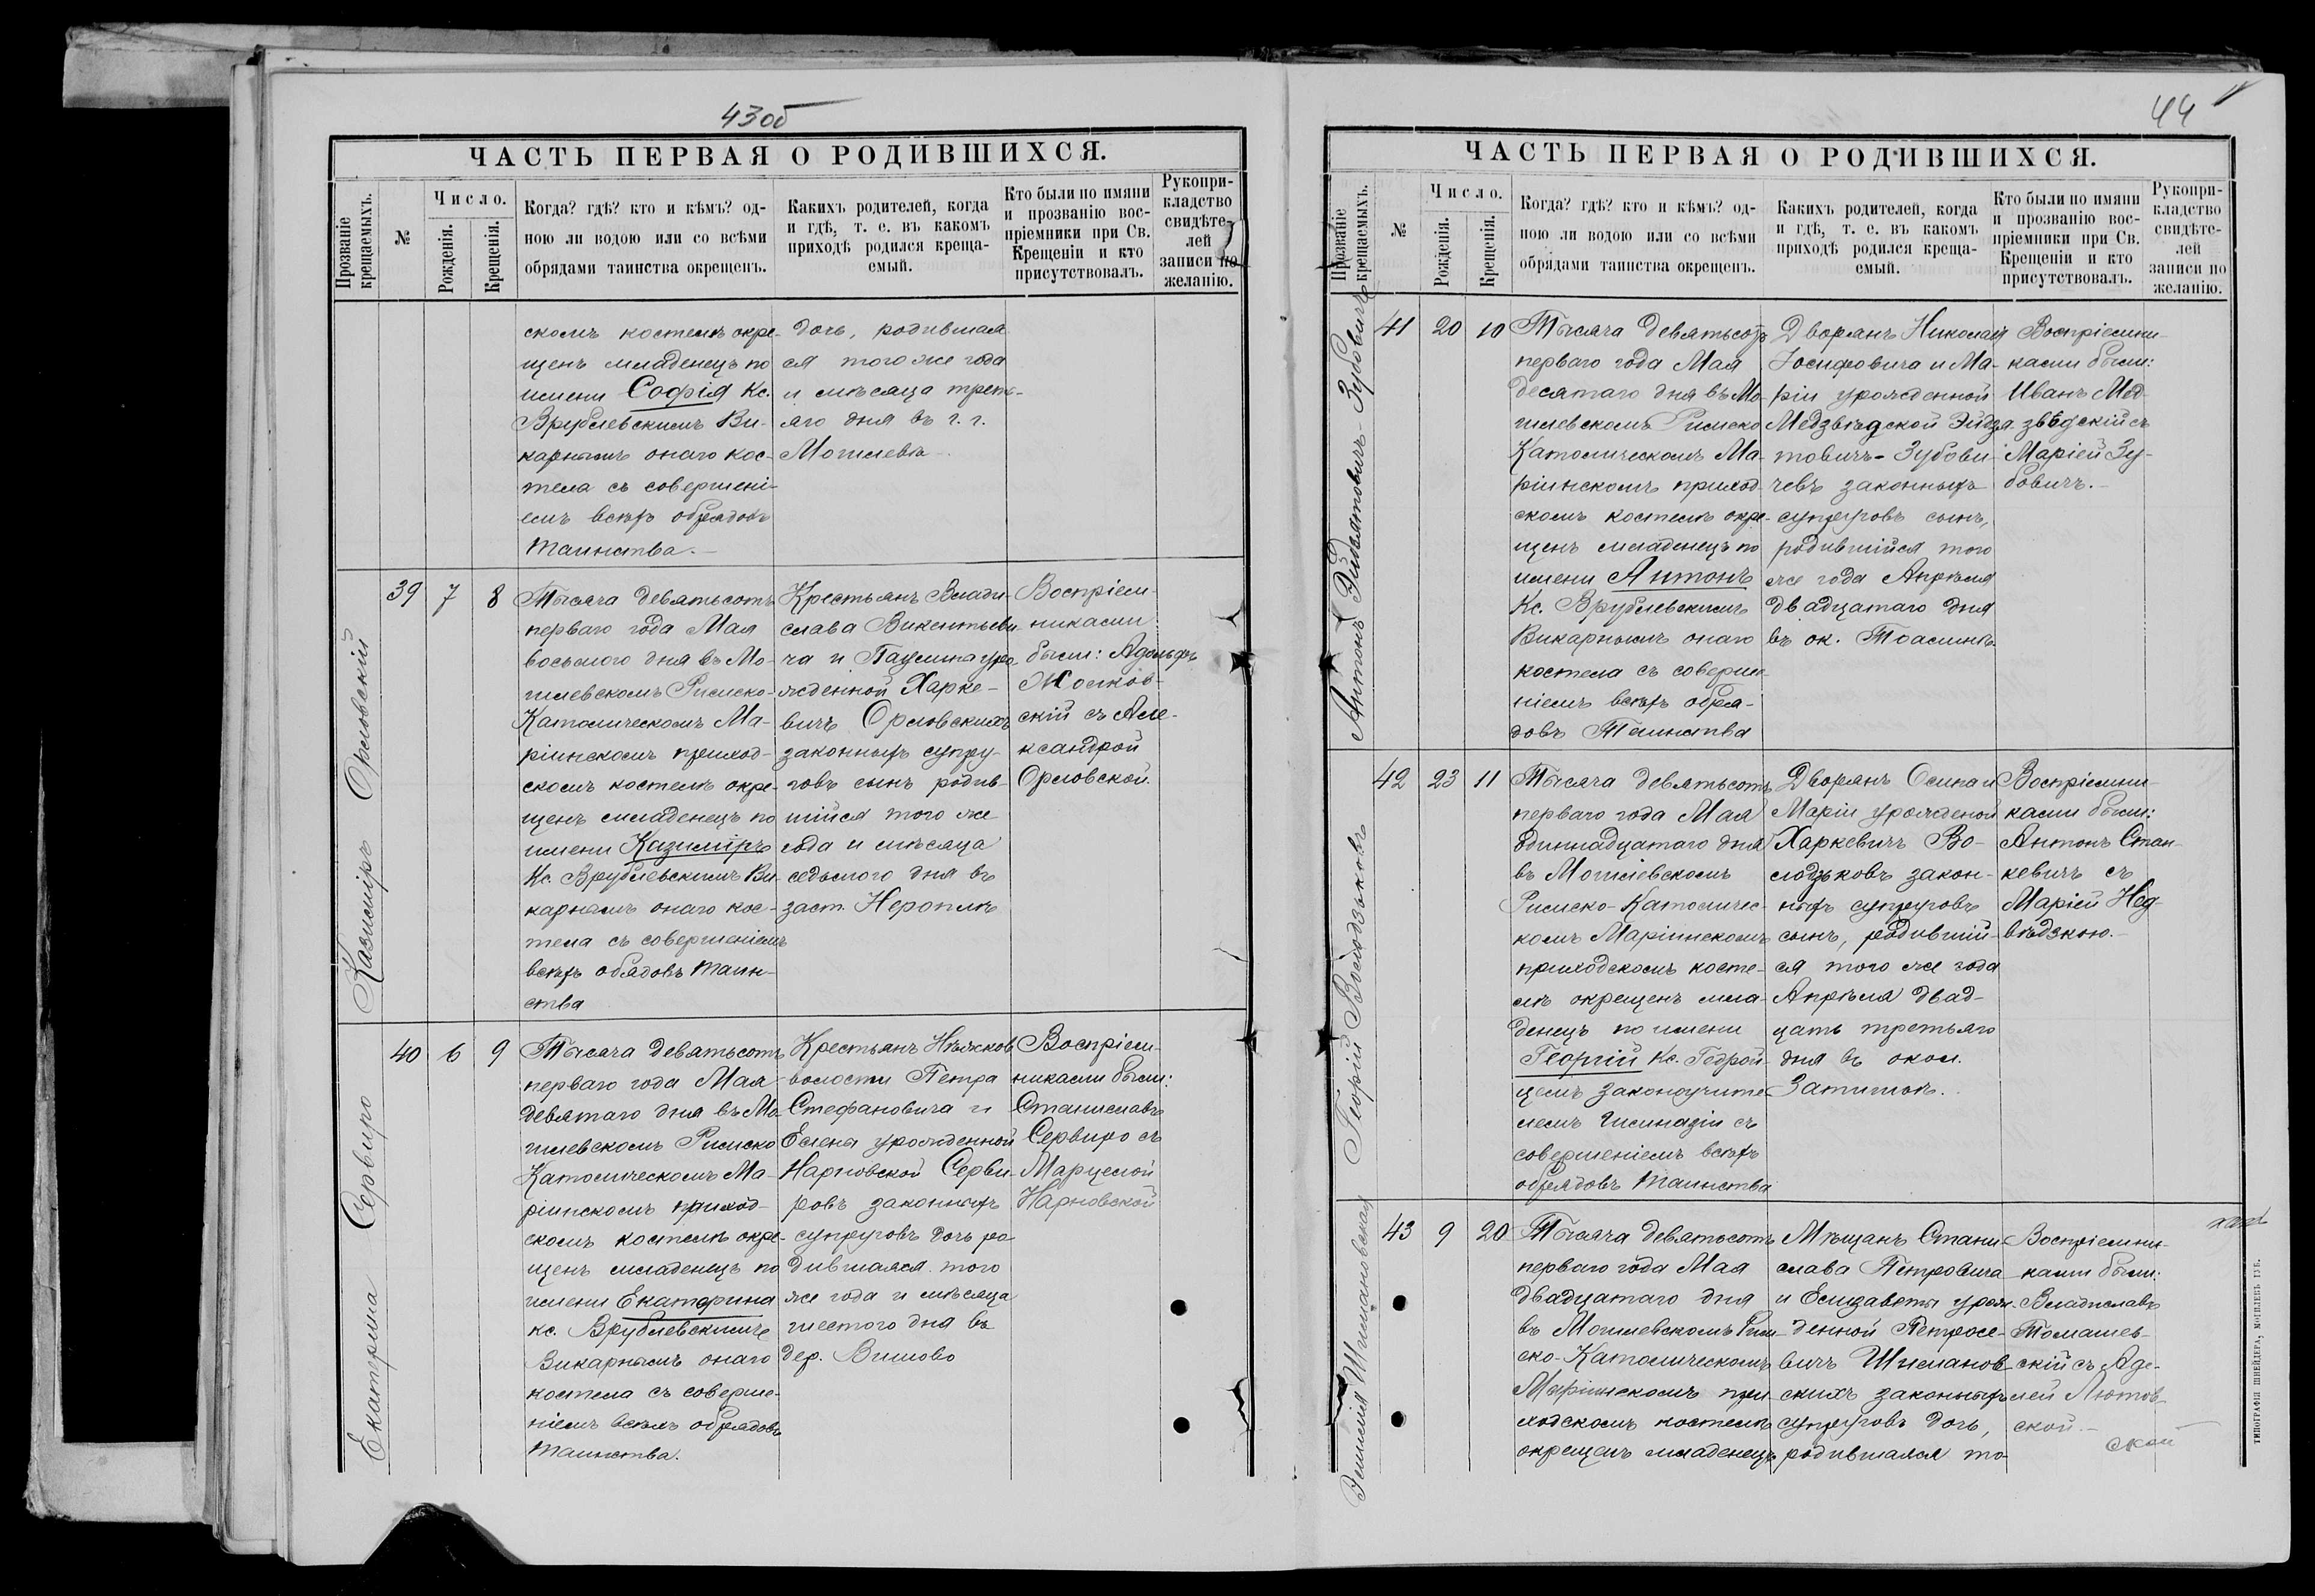 43об
ЧАСТЬ ПЕРВАЯ О РОДИВШИХСЯ.
Прозваніе крещаемыхъ.
№
Число.
Рожденія.
Крещенія.
Когда? гдѣ? кто и кѣмъ? од-
ною ли водою или со всѣми
обрядами таинства окрещенъ.
Какихъ родителей, когда
и гдѣ, т. е. въ какомъ
приходѣ родился креща-
емый.
Кто были по имяни
и прозванію вос-
пріемники при Св.
Крещеніи и кто
присутствовалъ.
Рукопри-
кладство
свидѣте-
лей
записи по
желанію.
скомъ костелѣ окре-
щенъ младенецъ по
имени Софія Кс.
Врублевскимъ Ви-
карнымъ онаго кос-
тела съ совершені-
емъ всѣхъ обрядовъ
таинства.
дочь, родившая
ся того же года
и мѣсяца треть-
яго дня въ г. г.
Могилевѣ
Казиміръ Орловскій
39 7 8
Тысяча девятьсотъ
перваго года Мая
восьмого дня въ Мо-
гилевскомъ Римско-
Католическомъ Ма-
ріинскомъ приход-
скомъ костелѣ окре-
щенъ младенецъ по
имени Казиміръ
Кс. Врублевскимъ Ви-
карнымъ онаго кос-
тела съ совершеніемъ
всѣхъ обядовъ таин-
ства
Крестьянъ Влади-
слава Викентьеви-
ча и Паулина уро-
жденной Харке-
вичъ Орловскихъ
законныхъ супру-
говъ сынъ родив-
шійся того же
года и мѣсяца
седьмого дня въ
заст. Нерополѣ
Воспріем-
никами
были: Адольфъ
Жолков-
скій съ Але-
ксандрой
Орловской.
Екатерина Сервиро
40 6 9
Тысяча девятьсотъ
перваго года Мая
девятаго дня въ Мо-
гилевскомъ Римско
Католическомъ Ма-
ріинскомъ приход-
скомъ костелѣ окре-
щенъ младенецъ по
имени Екатерина
кс. Врублевскимъ
Викарнымъ онаго
костела съ соверше-
ніемъ всѣхъ обрядовъ
таинства.
Крестьянъ Нѣжков
волости Петра
Стефановича и
Елены урожденной
Нарновской Серви-
ровъ законныхъ
супруговъ дочь ро-
дившаяся того
же года и мѣсяца
шестого дня въ
дер. Вилово
Воспріем-
никами были:
Станиславъ
Сервиро съ
Марцелой
Нарновской
44
ЧАСТЬ ПЕРВАЯ О РОДИВШИХСЯ.
Прозваніе крещаемыхъ.
№
Число.
Рожденія.
Крещенія.
Когда? гдѣ? кто и кѣмъ? од-
ною ли водою или со всѣми
обрядами таинства окрещенъ.
Какихъ родителей, когда
и гдѣ, т. е. въ какомъ
приходѣ родился креща-
емый.
Кто были по имяни
и прозванію вос-
пріемники при Св.
Крещеніи и кто
присутствовалъ.
Рукопри-
кладство
свидѣте-
лей
записи по
желанію.
Антонъ Эйдзятовичъ-Зубовичъ
41 20 10
Тысяча девятьсотъ
перваго года Мая
десятаго дня въ Мо-
гилевскомъ Римско
Католическомъ Ма-
ріинскомъ приход-
скомъ костелѣ окре-
щенъ младенецъ по
имени Антонъ
Кс. Врублевскимъ
Викарнымъ онаго
костела съ соверше-
ніемъ всѣхъ обря-
довъ Таинства
Дворянъ Николая
Іосифовича и Ма-
ріи урожденной
Медзвѣдской Эйдзя
товичъ-Зубови-
чевъ законныхъ
супруговъ сынъ,
родившійся того
же года Апрѣля
двадцатаго дня
въ ок. Тоасинѣ.
Воспріемни-
ками были:
Иванъ Мед-
звѣдскій съ
Маріей Зу-
бовичъ.
Георгій Володзьковъ
42 23 11
Тысяча девятьсотъ
перваго года Мая
одиннадцатаго дня
въ Могилевскомъ
Римско-Католичес-
комъ Маріинскомъ
приходскомъ косте-
лѣ окрещенъ мла-
денецъ по имени
Георгій Кс. Гедрой-
цемъ законоучите-
лемъ Гимназіи съ
совершеніемъ всѣхъ
обрядовъ таинства
Дворянъ Осипа и
Маріи урожденой
Харкевичъ Во-
лодзьковъ закон-
ныхъ супруговъ
сынъ, родивший-
ся того же года
Апрѣля двад-
цать третьяго
дня въ окол.
Затишьѣ.
Воспріемни-
ками были:
Антонъ Стан-
кевичъ съ
Маріей Нед-
вѣдзкою.
Эмилія Шимановская
43 9 20
Тысяча девятьсотъ
перваго года Мая
двадцатаго дня
въ Могилевскомъ Рим-
ско-Католическомъ
Маріинскомъ при
ходскомъ костелѣ
окрещенъ младенецъ
Мѣщанъ Стани-
слава Петровича
и Елизаветы урож-
денной Петросе-
вичъ Шиманов-
скихъ законныхъ
супруговъ дочь,
родившаяся то-
Воспріемни-
ками были:
Владиславъ
Томашев-
скій съ Аде-
лей Лютов-
ской.
ской
ТИПОГРАФІЯ ШНЕЙДЕРА, МОГИЛЕВЪ ГУБ.